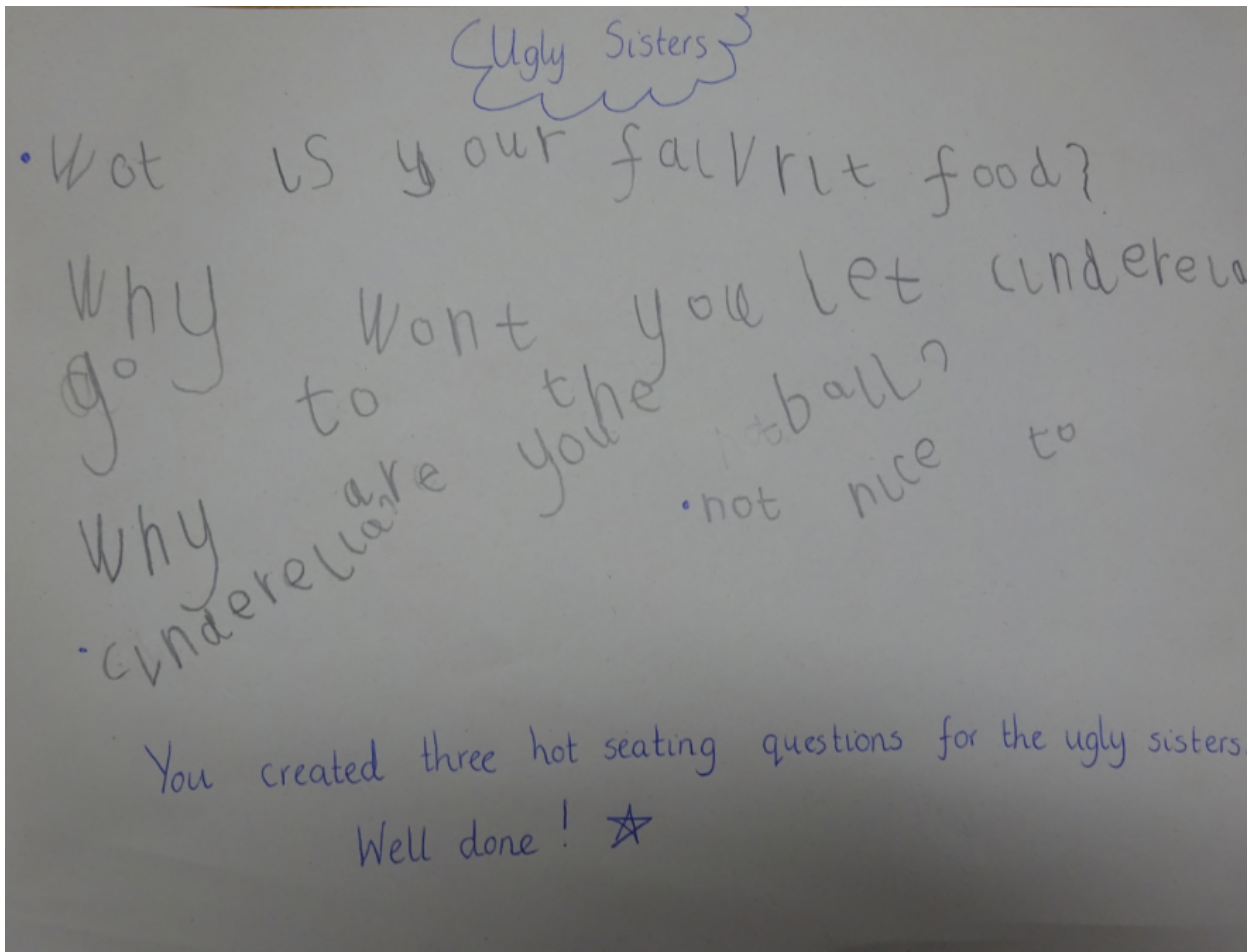 Ugly Sisters
• Wot is your faivrit food?
Why wont you let cinderela
go to the ball?
Why are you •not nice to
•cinderella?
You created three hot seating questions for the ugly sisters.
Well done! ☆